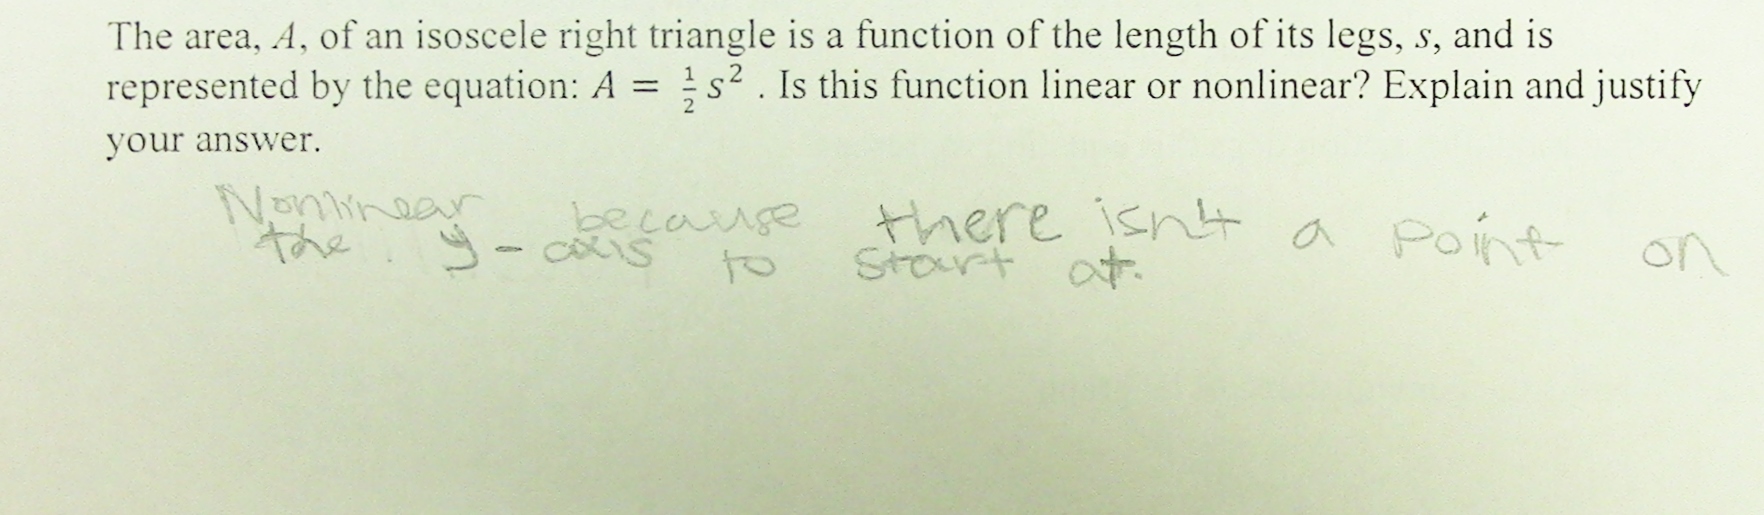 The area, A, of an isoscele right triangle is a function of the length of its legs, s, and is
represented by the equation: A = ½ s² . Is this function linear or nonlinear? Explain and justify
your answer.
Nonlinear because there isnt a point on
the y-axis to start at.